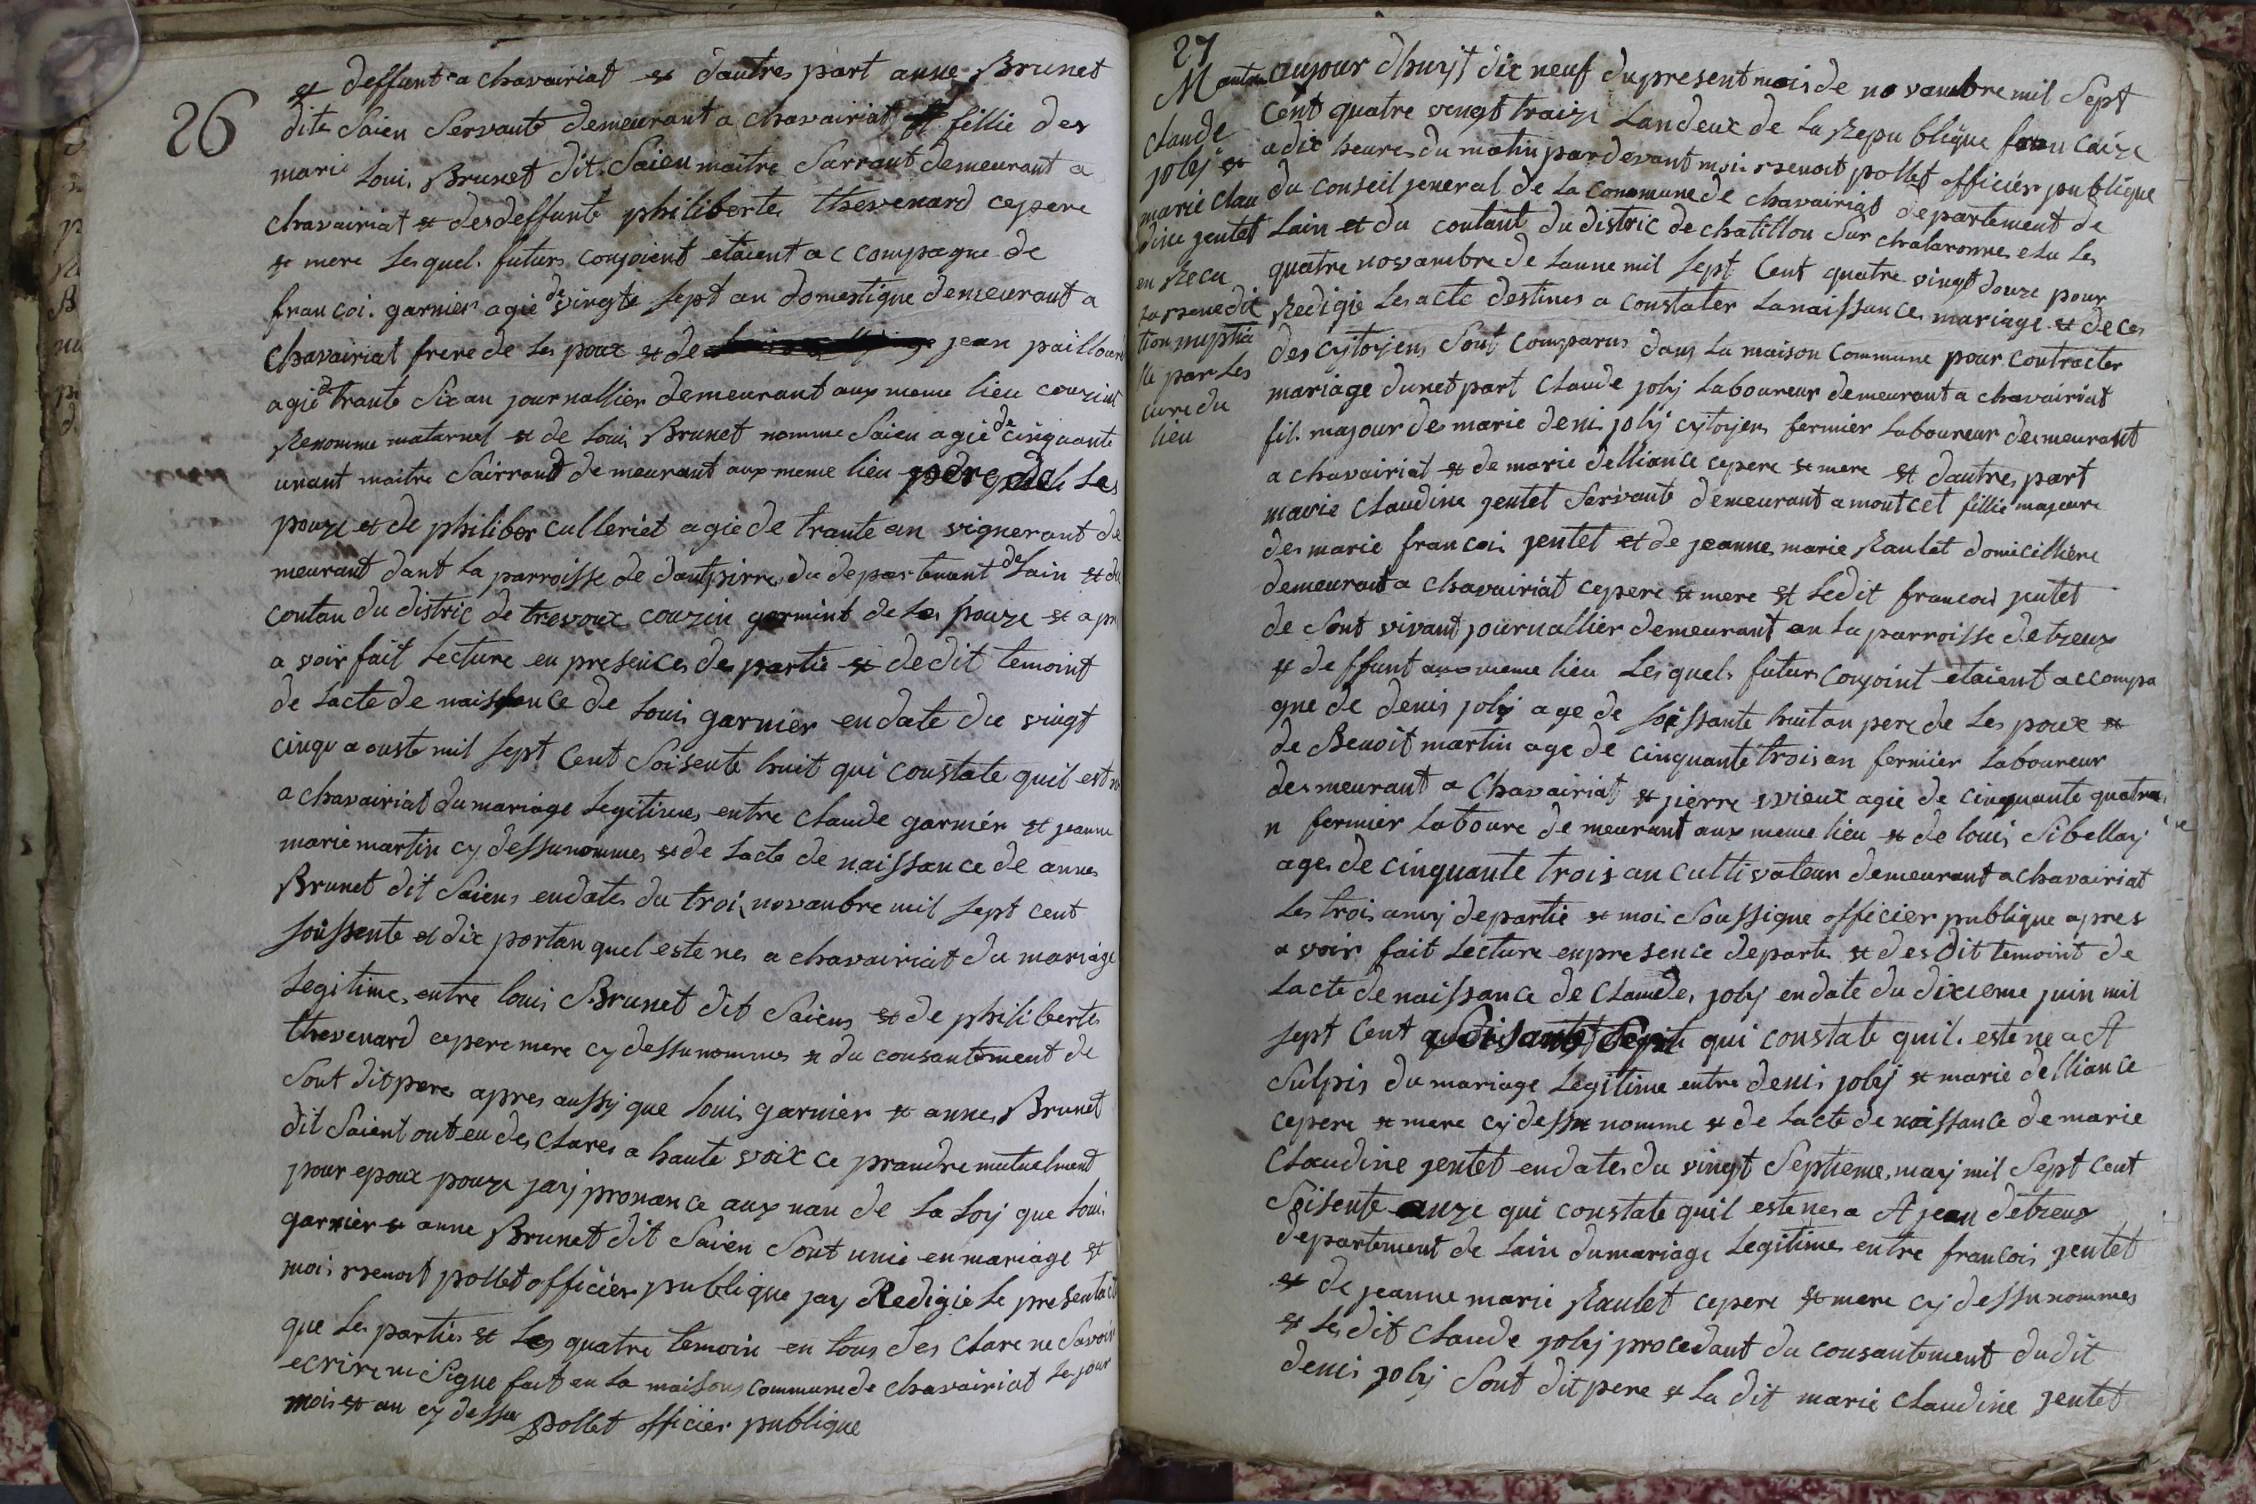 26
et deffunt a chavairiat et dautres part anne Brunet
dite Saien Servante demeurant a chavairiat fillie des
marie Loui Brunet dit Saien maitre Sarrant demeurant a
chavairiat et des deffunte philiberte thevenard ce pere
et mere Les quel futurs conjoient etaient a c compagne de
francoi garnier agie de vingte sept an domestique demeurant a
chavairiat frere de Les poux et de jean paillourd
agie de trante Six an journallier demeurant aux meme lieu couzint
Renomme maternel et de Loui Brunet nomme Saien agie de cinquante
unant maitre Sairrand demeurant aux meme lieu pere de Les
pouze et de philiber culleriet agie de trante an vignerant de
meurant dant La parroisse de dontpirre du departemant de Lain et du
contan du distric de trevoux couzin germint de Les pouze et a pres
a voir fait Lecture en presences de partie et de dit temoint
de Lacte de naissence de Loui garnier en date du vingt
cinqu a ouste mil sept Cent Soisente huit qui constate quil est ne
a chavairiat du mariage Legitimes entre Claude garnier et jeanne
marie martin cy dessu nommes et de Lacte de naissance de annes
Brunet dit Saiens en dates du troi novanbre mil sept cent
soissente et dix portan quel este nes a chavairiat du mariage
Legitimes entre loui Brunet dit Saiens et de philiberte
thevenard ce pere mere cy dessu nommes et du consantement de
Sont dit pere apres aussy que Loui garnier et annes Brunet
dit Saient ont eu des Clares a haute voix ce prandre mutuelment
pour epoux pouze jay pronance aux nan de La Loy que Loui
garnier et anne Brunet dit Saien Sont unie en mariage et
moi Benoit pollet officier publique jay Redigie Le present act
que Les parties et Les quatre temoin en tous des Clare ne Savoir
ecrire ni Signe fait en La maisons commune de chavairiat Le jour
mois et an cy dessu pollet officier publique
27
M
Claude
joly et
marie Clau
dine gentet
en Recu
La Benedic
tion nuptia
lle par Les
cure du
lieu
aujour dhuyt dix neuf du present mois de no vambre mil Sept
Cent quatre vingt traize Landeux de La Republique francaize
a dix heures du matin par devant moi Benoit pollet officier publique
du Conseil jeneral de La Commune de chavairiat departement de
Lain et du contant du distric de chatillon Sur chalaronne elu Le
quatre novambre de Lanne mil sept Cent quatre vingt douze pour
Redigie Les acte destines a constater La naissances mariage et deces
des cytoyens Sont comparus dans La maison commune pour contracter
mariage dunet part Claude joly Laboureur demeurant a chavairiat
fil majour des marie deni joly cytoyen fermier Laboureur desmeurant
a chavairiat et de marie delliance ce pere et mere et dautres part
marie Claudine gentet Servante demeurant a montcet fillie majeure
des marie francoi gentet et de jeanne marie Raulet domicilliere
demeurant a chavairiat ce pere et mere et Ledit francoi gentet
de Sont vivant journallier demeurant an La parroisse detreux
et deffunt aux meme lieu Les quels futurs conjoint etaient accompa
gne de denis joly age de soissante huit an pere de Les poux et
de Benoit martin age de cinquante trois an fermier Laboureur
desmeurant a Chavairiat et pierre vvieux agie de cinquante quatre
n fermier Laboure demeurant aux meme lieu et de Loui Sibellay
ages de cinquante trois an cultivateur demeurant a chavairiat
Les trois amy de partie et moi Soussigne officier publique apres
a voir fait Lecture en presence de parte et des dit temoint de
Lacte de naissance de Claude joly en date du dixieme juin mil
sept Cent Soisante Sept qui constate quil este ne a St
Sulpis du mariage Legitime entre deni joly et marie delliance
ce pere et mere cy dessu nomme et de Lacte de naissance de marie
Claudine gentet en dates du vingt Septieme may mil Sept Cent
Soisente anze qui constate quil este nes a St jean detreux
departement de Lain du mariage Legitimes entre francoi gentet
et de jeanne marie Raulet ce pere et mere cy dessu nommes
et Les dit Claude joly procedant du consantement du dit
deni joly Sont dit pere et La dit marie Claudine gentet